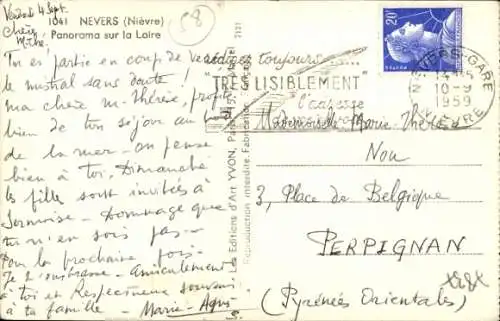 Vendredi 4 Sept.
1041 NEVERS (Nièvre)
Panorama sur la Loire
58
Chère
M-Thé.
Tu es partie en coup de vent
le mistral sans doute !
ma chère M-Thérèse, profite
bien de ton séjour au bord
de la mer - on pense
bien à toi, Dimanche
les filles sont invitées à
Dommage que
tu n'en sois pas -
Pour la prochaine fois -
Je t'embrasse - Amicalement
à toi et Respectueux souvenir
à ta famille - Marie-Agnès
toujours
"TRÈS LISIBLEMENT"
l'adresse
20F
NEVERS-GARE
10-9
1959
NIÈVRE
Les Editions d'Art YVON, Paris
Fabrication
Reproduction interdite.
Mademoiselle Marie-Thérèse
Nou
3, Place de Belgique
PERPIGNAN
(Pyrénées Orientales)